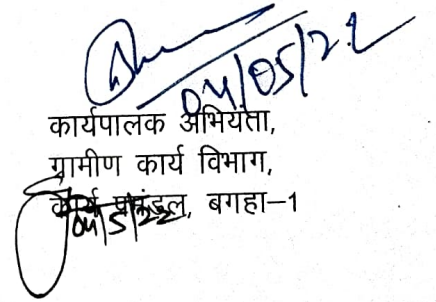 04/05/22
कार्यपालक अभियंता,
ग्रामीण कार्य विभाग,
कार्य प्रमंडल, बगहा–1
04/5/22